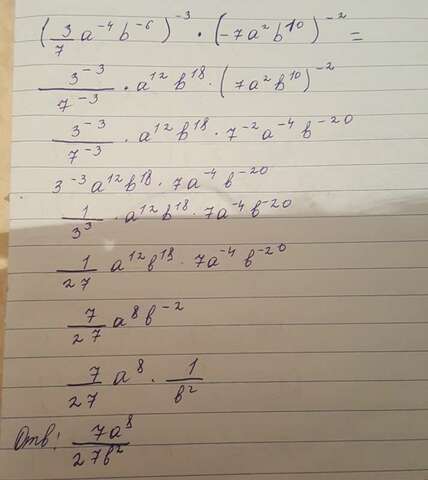 (3/7 a⁻⁴ b⁻⁶)⁻³ · (-7a² b¹⁰)⁻² =
3⁻³/7⁻³ · a¹² b¹⁸ · (7a² b¹⁰)⁻²
3⁻³/7⁻³ · a¹² b¹⁸ · 7⁻² a⁻⁴ b⁻²⁰
3⁻³ a¹² b¹⁸ · 7a⁻⁴ b⁻²⁰
1/3³ · a¹² b¹⁸ · 7a⁻⁴ b⁻²⁰
1/27 a¹² b¹⁸ · 7a⁻⁴ b⁻²⁰
7/27 a⁸ b⁻²
7/27 a⁸ · 1/b²
Отв: 7a⁸/27b²